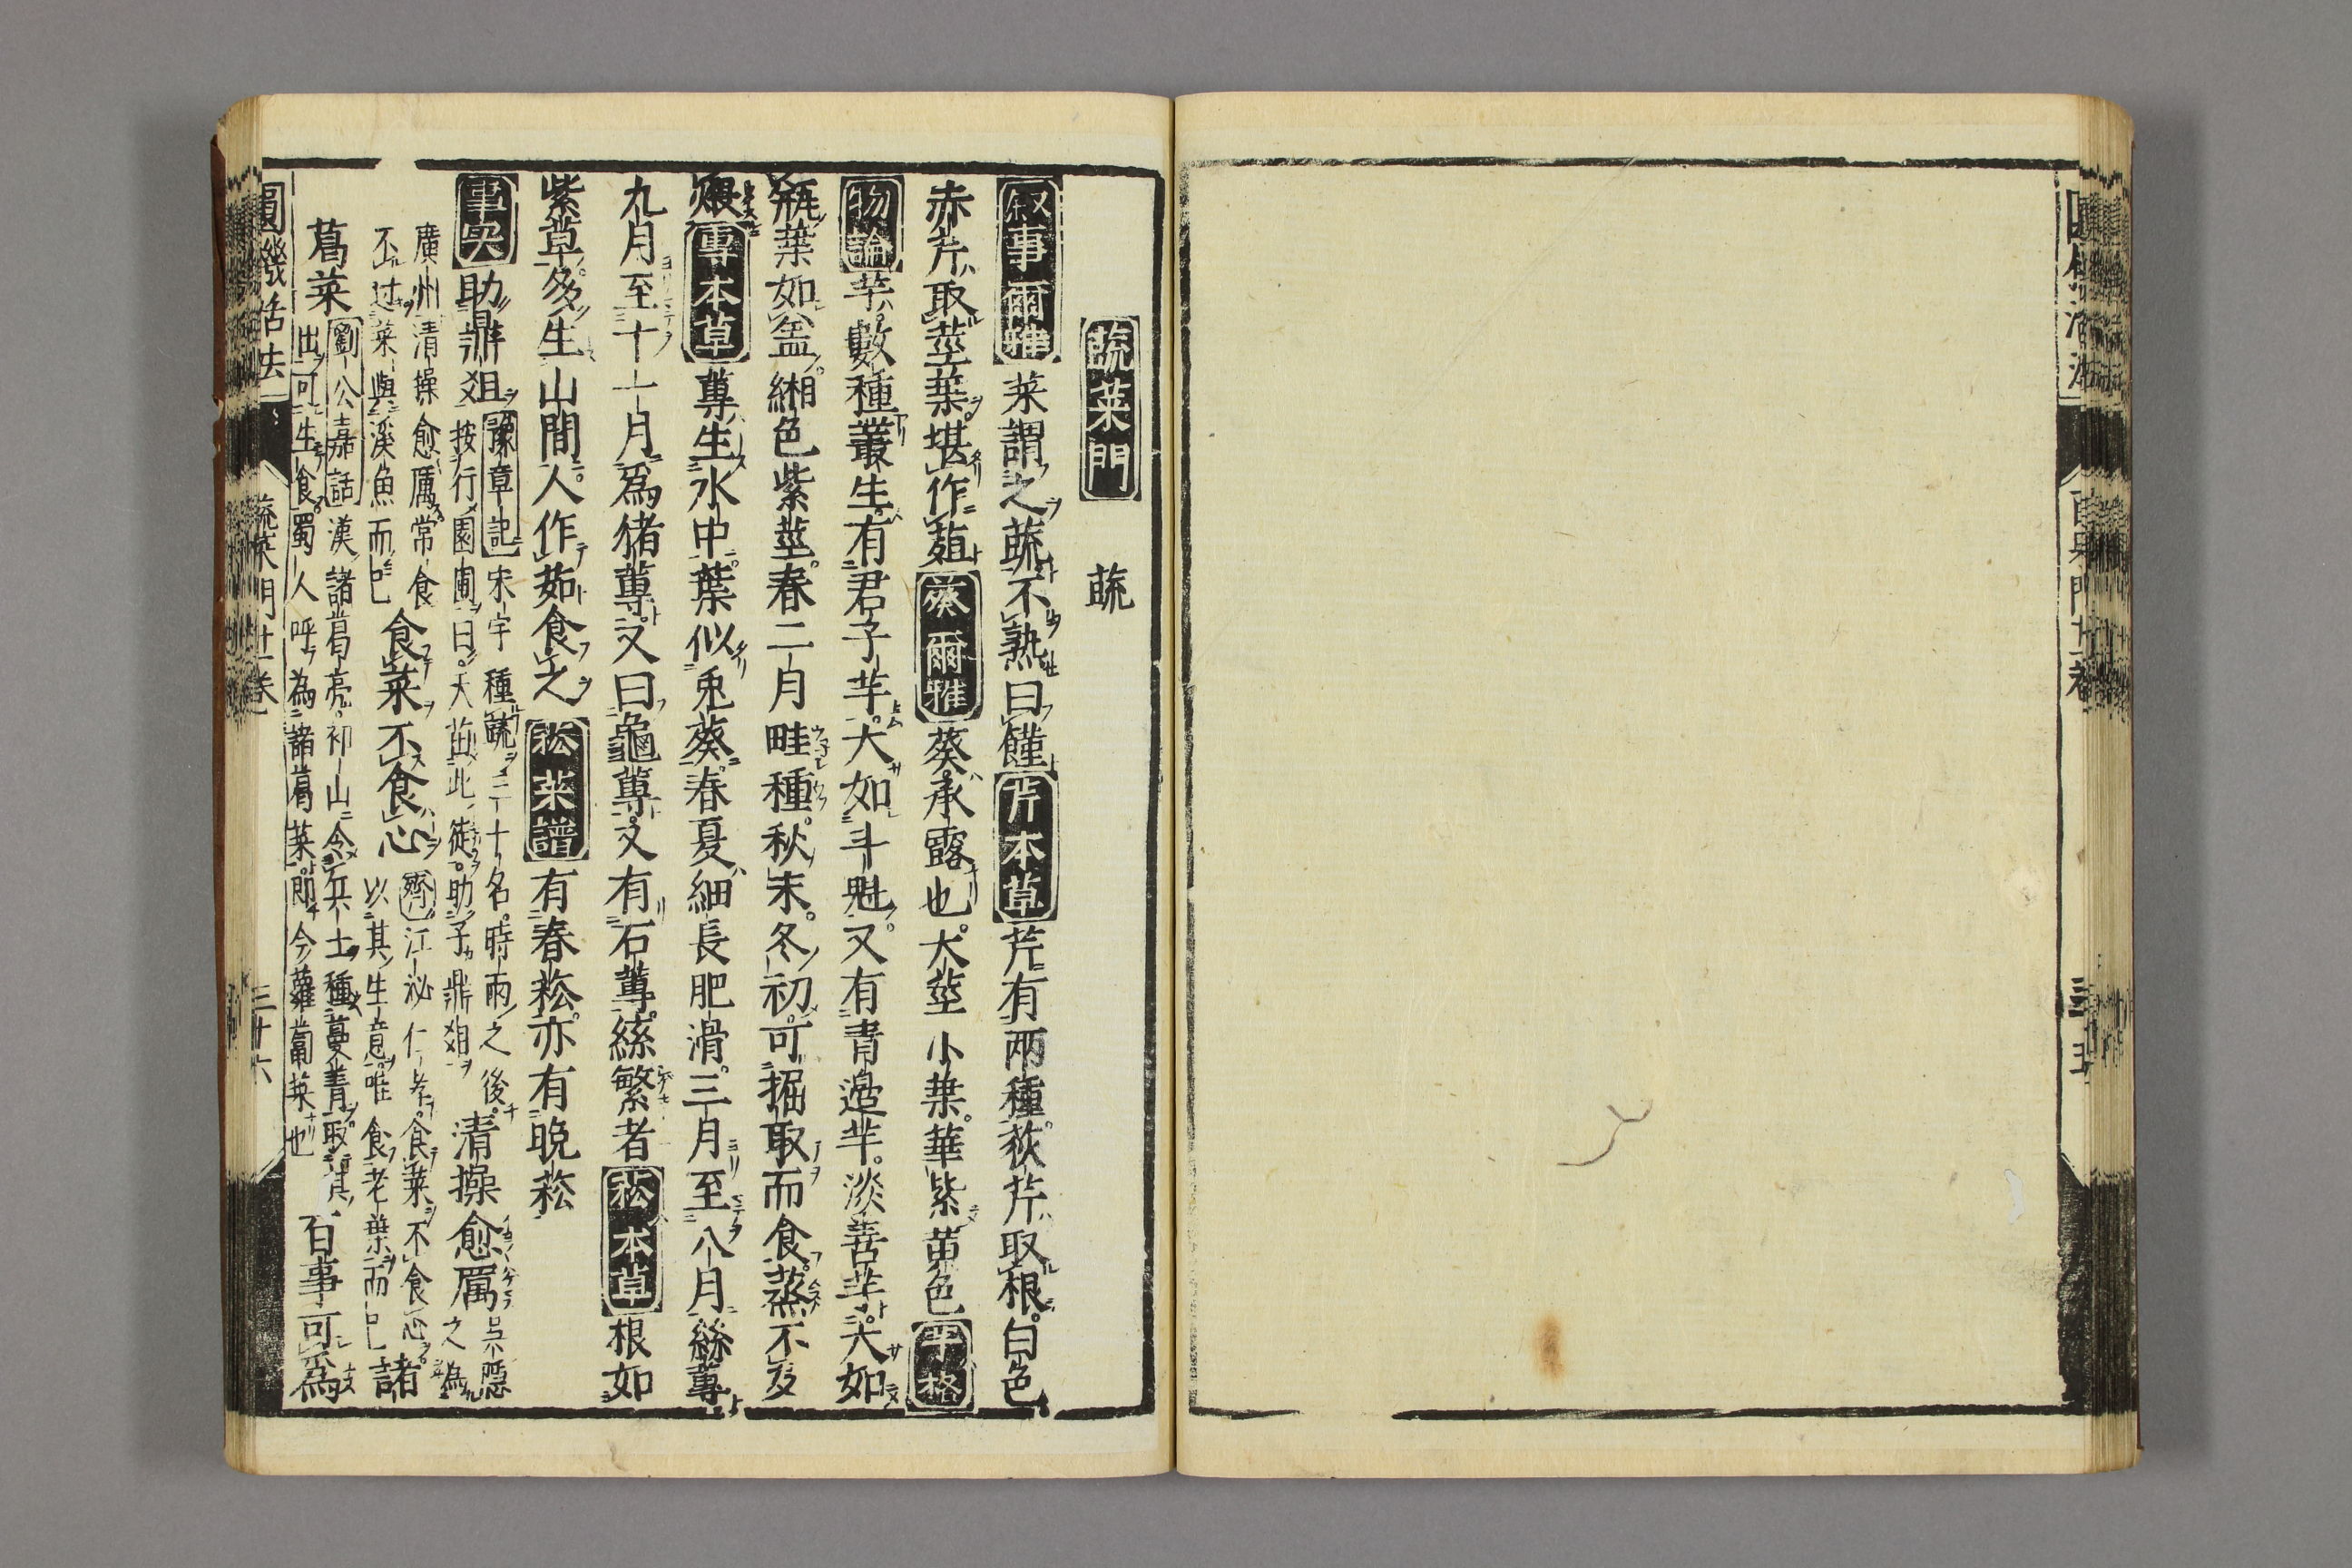 蔬菜門 蔬
叙事 爾雅 菜謂之蔬不熟曰饉 芹本草 芹有两種荻芹取根白色
赤芹取莖葉堪作葅 葵爾雅 葵承露也大莖小葉華紫黄色
物論 芋數種叢生有君子芋大如斗魁又有青邉芋淡善芋大如
瓶葉如盆緗色紫莖春二月畦種秋末冬初可掘取而食蒸不及
煨 蓴本草 蓴生水中葉似兎葵春夏細長肥滑三月至八月絲蓴
九月至十一月爲猪蓴又曰龜蓴又有石蓴絲繁者 菘本草 根如
紫草多生山間人作茹食之 菘菜譜 有春菘亦有晩菘
事実 助鼎俎 豫章記 宋宇種蔬三十名時雨之後
按行園圃曰天茁此徒助子鼎俎 清操愈厲 呉隠之為
廣州清操愈厲常食
不过菜與溪魚而已 食菜不食心 齊江泌仁孝食菜不食心
以其生意唯食老葉而已 諸
葛菜 劉公嘉話 漢諸葛亮初山令兵士種蔓菁取其
出可生食蜀人呼為諸葛菜即今蘿蔔菜也 百事可爲
圓機活法 蔬菜門廿一巻 三十六